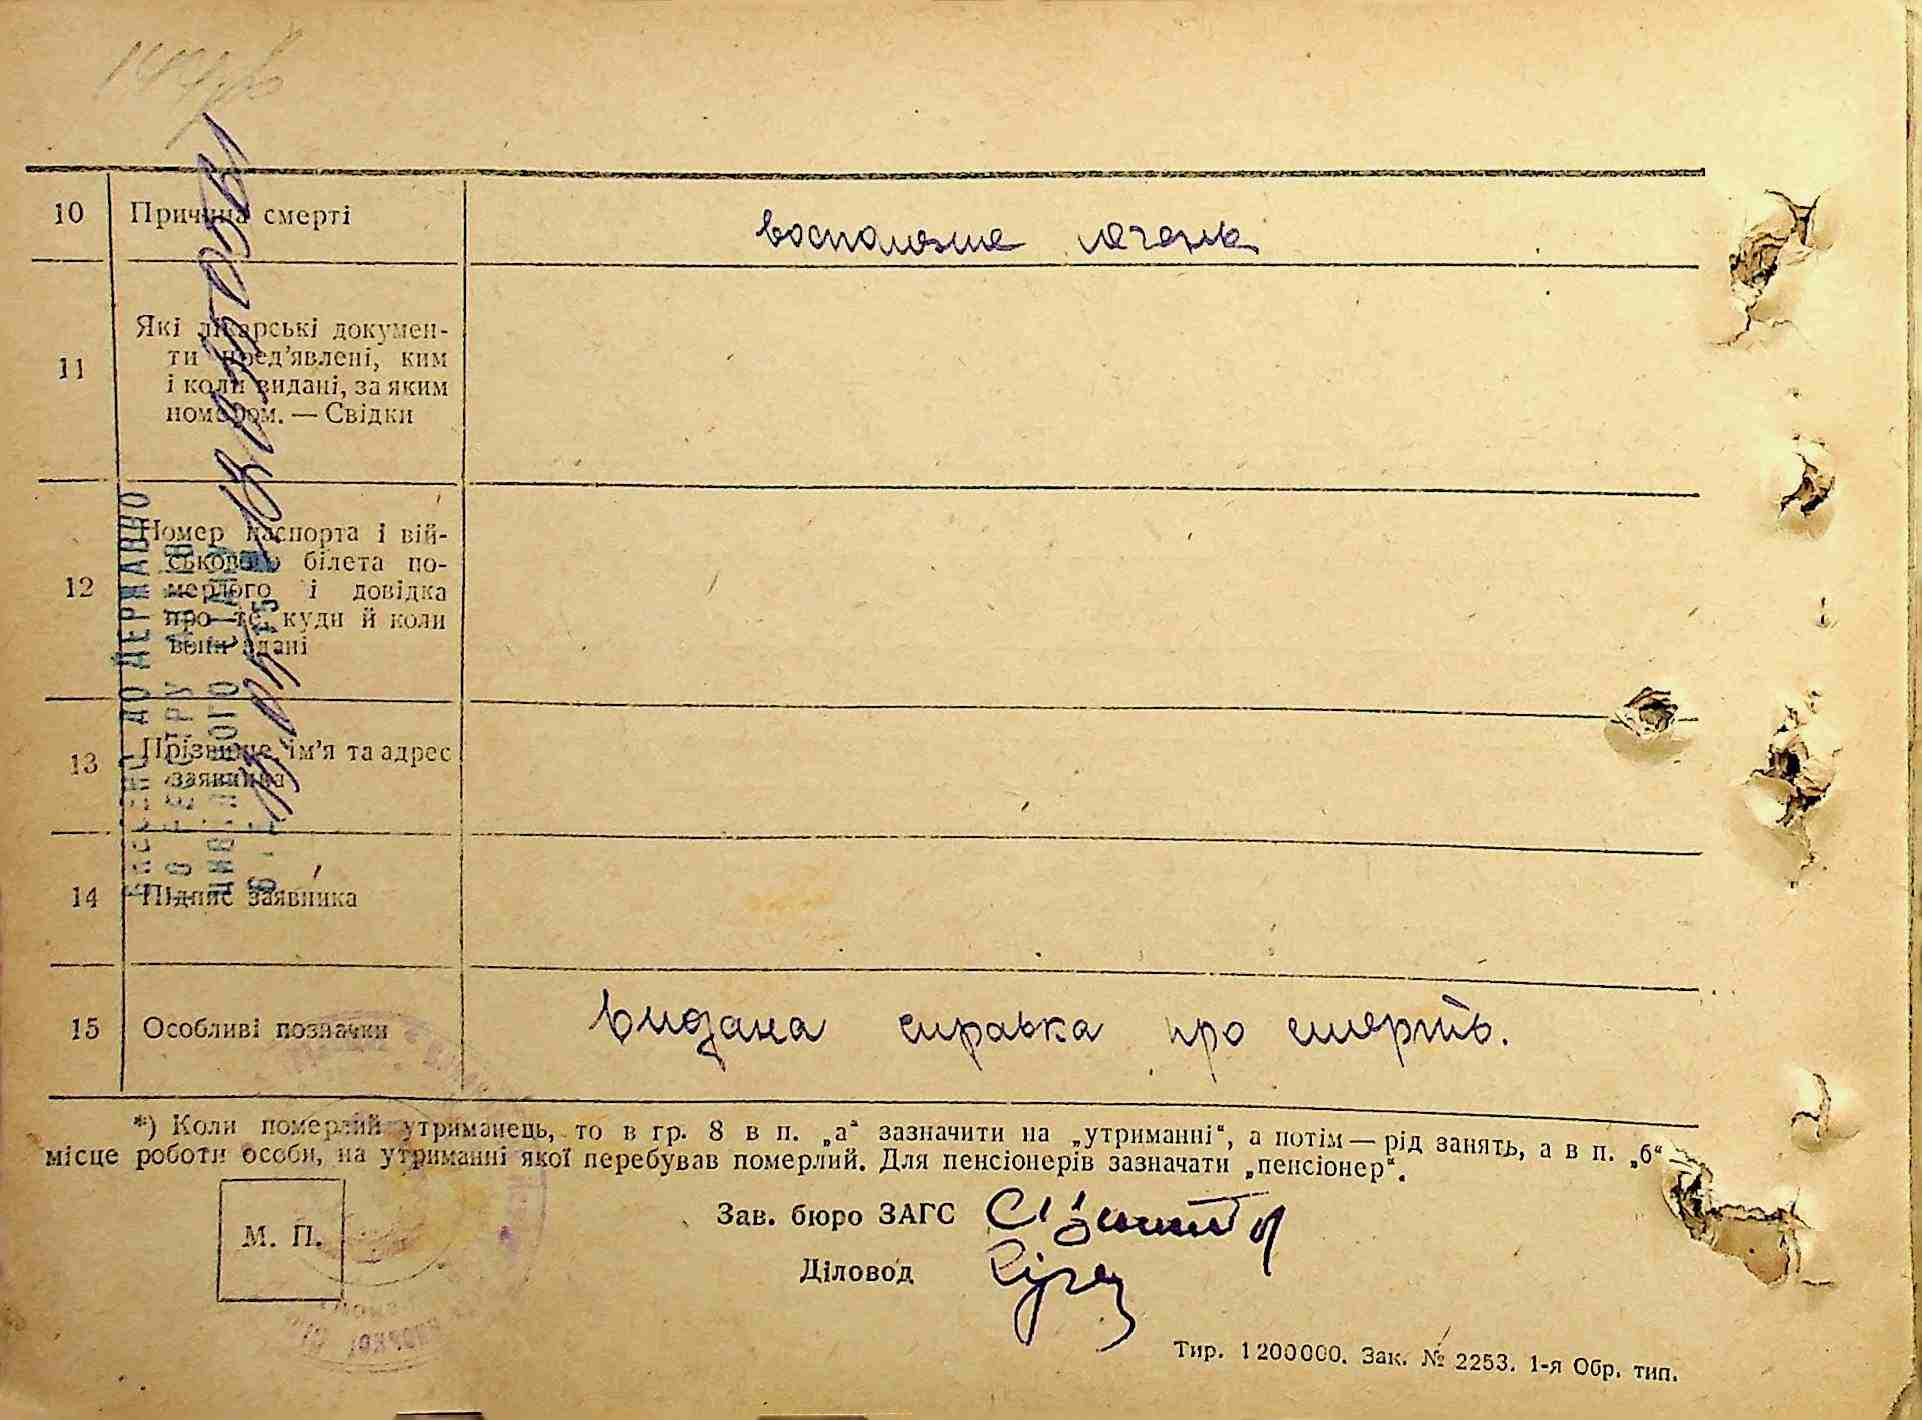 10 Причина смерті воспаление легень
11 Які лікарські докумен-
ти пред'явлені, ким
і коли видані, за яким
номером. — Свідки
12 Номер паспорта і вій-
ськового білета по-
мерлого і довідка
про те, куди й коли
вони здані
13 Прізвище, ім'я та адрес
заявника
14 Підпис заявника
15 Особливі позначки видана справка про смерть.
*) Коли померлий утриманець, то в гр. 8 в п. „а“ зазначити на „утриманні“, а потім — рід занять, а в п. „б“ —
місце роботи особи, на утриманні якої перебував померлий. Для пенсіонерів зазначати „пенсіонер“.
Зав. бюро ЗАГС
М. П.
Діловод
Тир. 1200000. Зак. № 2253. 1-я Обр. тип.
ВНЕСЕНО ДО ДЕРЖАВНО
ГО РЕЄСТРУ АКТІВ
ЦИВІЛЬНОГО СТАНУ